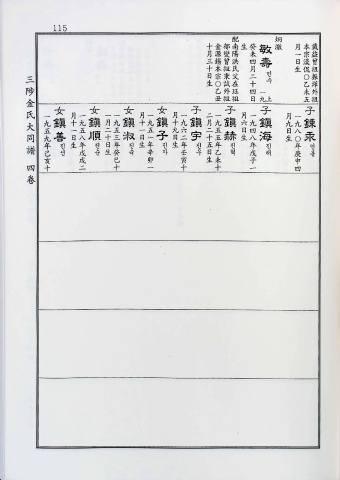 115
三陟金氏大同譜 四卷
戴益曾祖錫洋外祖
本宗濩侃〇乙未五
月一日生
炯澈
敏壽 민수 上
一九
癸未四月二十四日
生
配南陽洪氏父在珏祖
鄭燮曾祖東誠外祖
金源錫本宗〇乙丑
十月三十日生
子錬承 연승
一九八〇年庚申四
月九日生
子鎭海 진해
一九四八年戊子一
月六日生
子鎭赫 진혁
一九五五年乙未十
二月二十五日生
子鎭宇 진우
一九六二年壬寅十
月十九日生
女鎭子 진자
一九五一年辛卯一
月十一日生
女鎭淑 진숙
一九五三年癸巳十
月二十日生
女鎭順 진순
一九五八年戊戌二
月十一日生
女鎭善 진선
一九五九年己亥十